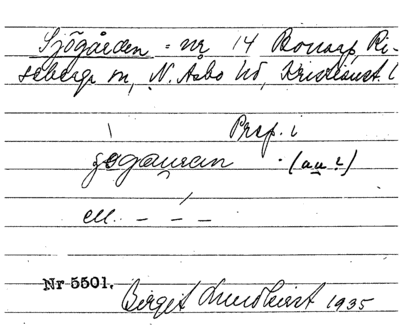 Sjögården = nr 14 Bonarp Ri-
seberga sn, N. Åsbo hd, Kristianst. l
Prep. i
(a u l)
ell. – – –
Nr 5501. Birgit Lundkvist 1935